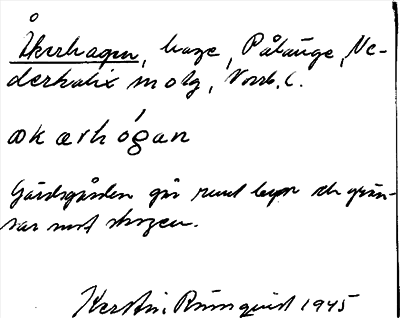 Åkerhagen, hage, Pålänge, Ne-
derkalix m olg, Norrb. l.
œkærhógan
Gärdsgården går runt              och grän-
sar mot skogen.
Kerstin Rönnquist 1945